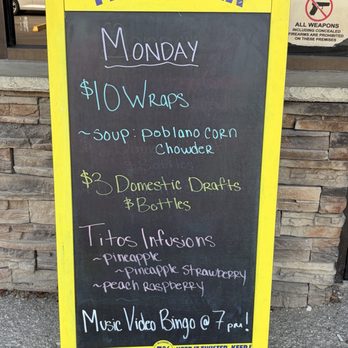 MONDAY
$10 WRAPS
~SOUP: POBLANO CORN
CHOWDER
$3 DOMESTIC DRAFTS
& BOTTLES
TITOS INFUSIONS
~PINEAPPLE
~PINEAPPLE STRAWBERRY
~PEACH RASPBERRY
MUSIC VIDEO BINGO @ 7 PM!
ALL WEAPONS
INCLUDING CONCEALED
FIREARMS ARE PROHIBITED
ON THESE PREMISES